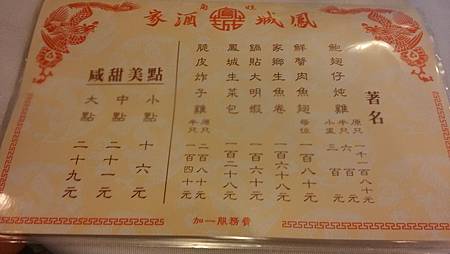 旺角
鳳城酒家
著名
鮑翅仔炖雞 原只 一千一百八十元
半只 六百元
小盅 三百元
鮮蟹肉魚翅 每位 一百八十元
家鄉生魚卷 一百六十元
鍋貼大明蝦 一百六十元
鳳城生菜包 一百二十八元
脆皮炸子雞 原只 二百八十元
半只 一百四十元
咸甜美點
小點 十六元
中點 二十一元
大點 二十九元
加一服務費